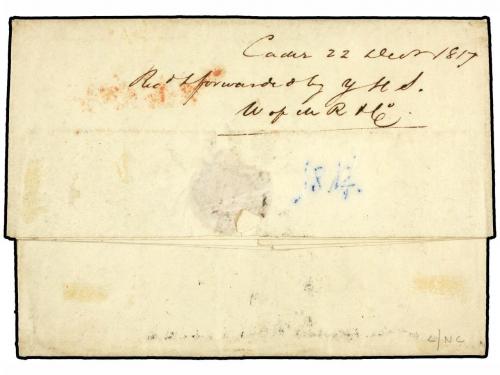 Cadiz 22 Decr 1817
Recd & forwarded by Y H S.
W o f M R & Co.
1817.
L/NC